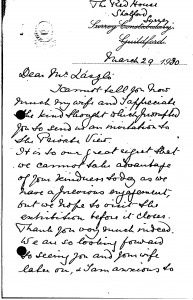 The Red House
Shalford,
Surrey
Surrey Constabulary,
Guildford.
March 29 1930
Dear Mr László
I cannot tell you how
much my wife and I appreciate
the kind thought which prompted
you to send us an invitation to
the Private View.
It is to our great regret that
we cannot take advantage
of your kindness today as we
have a previous engagement,
but we hope to visit the
exhibition before it closes.
Thank you very much indeed.
We are so looking forward
to seeing you and your wife
later on, & I am anxious to